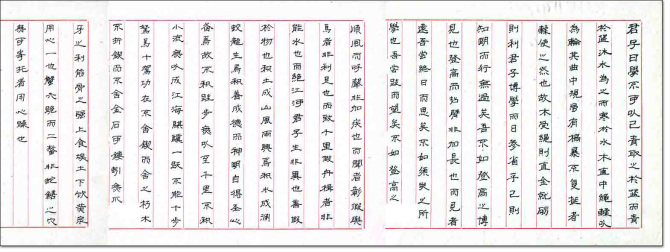 君子曰學不可以已青取之於藍而青
於藍冰水為之而寒於水木直中繩輮以
為輪其曲中規雖有槁暴不復挺者
輮使之然也故木受繩則直金就礪
則利君子博學而日參省乎己則
知明而行無過矣吾不如登高之博
見也登高而招臂非加長也而見者
遠吾嘗終日而思矣不如須臾之所
學也吾嘗跂而望矣不如登高之
順風而呼聲非加疾也而聞者彰假輿
馬者非利足也而致千里假舟楫者非
能水也而絕江河君子生非異也善假
於物也積土成山風雨興焉積水成淵
蛟龍生焉積善成德而神明自得聖心
備焉故不積跬步無以至千里不積
小流無以成江海騏驥一躍不能十步
駑馬十駕功在不舍鍥而舍之朽木
不折鍥而不舍金石可鏤螾無爪
牙之利筋骨之強上食埃土下飲黃泉
用心一也蟹六跪而二螯非蛇鱔之穴
無可寄托者用心躁也